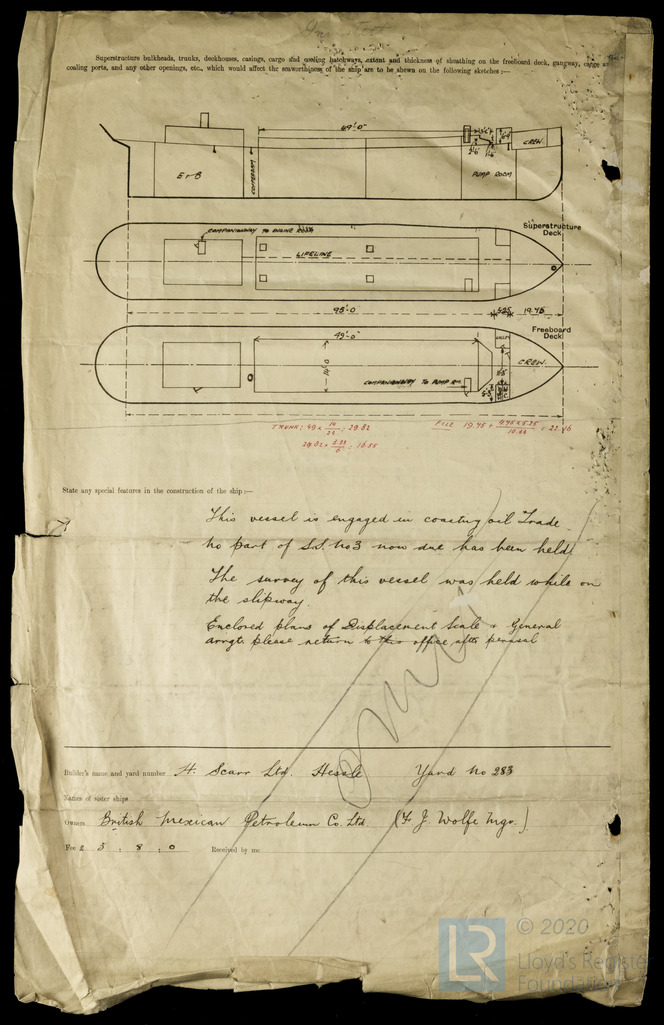 Superstructure bulkheads, trunks, deckhouses, casings, cargo and coaling hatchways, extent and thickness of sheathing on the freeboard deck, gangway, cargo and
coaling ports, and any other openings, etc., which would affect the seaworthiness of the ship are to be shewn on the following sketches :—
49'-0"
E & B
PUMP ROOM
CREW
COMPANIONWAY TO ENGINE ROOM
Superstructure
Deck
LIFELINE
98'-0
5.25
19.75
Freeboard
Deck
49'-0"
14'-0
GALLEY
CREW.
COMPANIONWAY TO PUMP RM.
TRUNK: 49 x
State any special features in the construction of the ship :—
This vessel is engaged in coasting oil Trade
No part of S.S. No 3 now due has been held.
The survey of this vessel was held while on
the slipway.
Enclosed plans of Displacement Scale & General
arrgt. please return to this office after perusal
omit
Builder's name and yard number H. Scarr Ltd. Hessle Yard No 283
Names of sister ships
Owners British Mexican Petroleum Co. Ltd. (F. J. Wolfe Mgr.)
Fee £ 5 : 8 : 0 Received by me
© 2020
LR
Lloyd's Register
Foundation